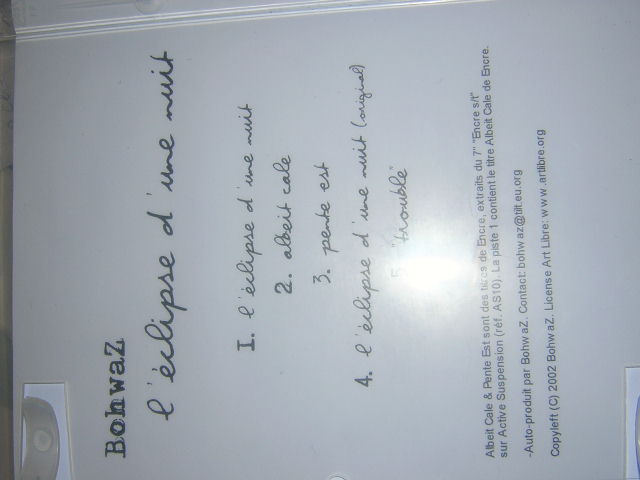 BohwaZ
l'éclipse d'une nuit
1. l'éclipse d'une nuit
2. albeit cale
3. pente est
4. l'éclipse d'une nuit (original)
5. "trouble"
Albeit Cale & Pente Est sont des titres de Encre, extraits du 7" "Encre s/t"
sur Active Suspension (réf. AS10). La piste 1 contient le titre Albeit Cale de Encre.
-Auto-produit par BohwaZ. Contact: bohwaz@tilt.eu.org
Copyleft (C) 2002 BohwaZ. License Art Libre: www.artlibre.org